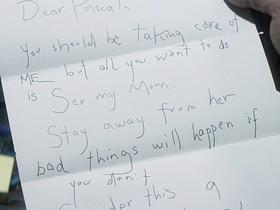 Dear Pascal,
you should be taking care of
ME but all you want to do
is Sex my Mom.
Stay away from her
bad things will happen if
you don't
this a